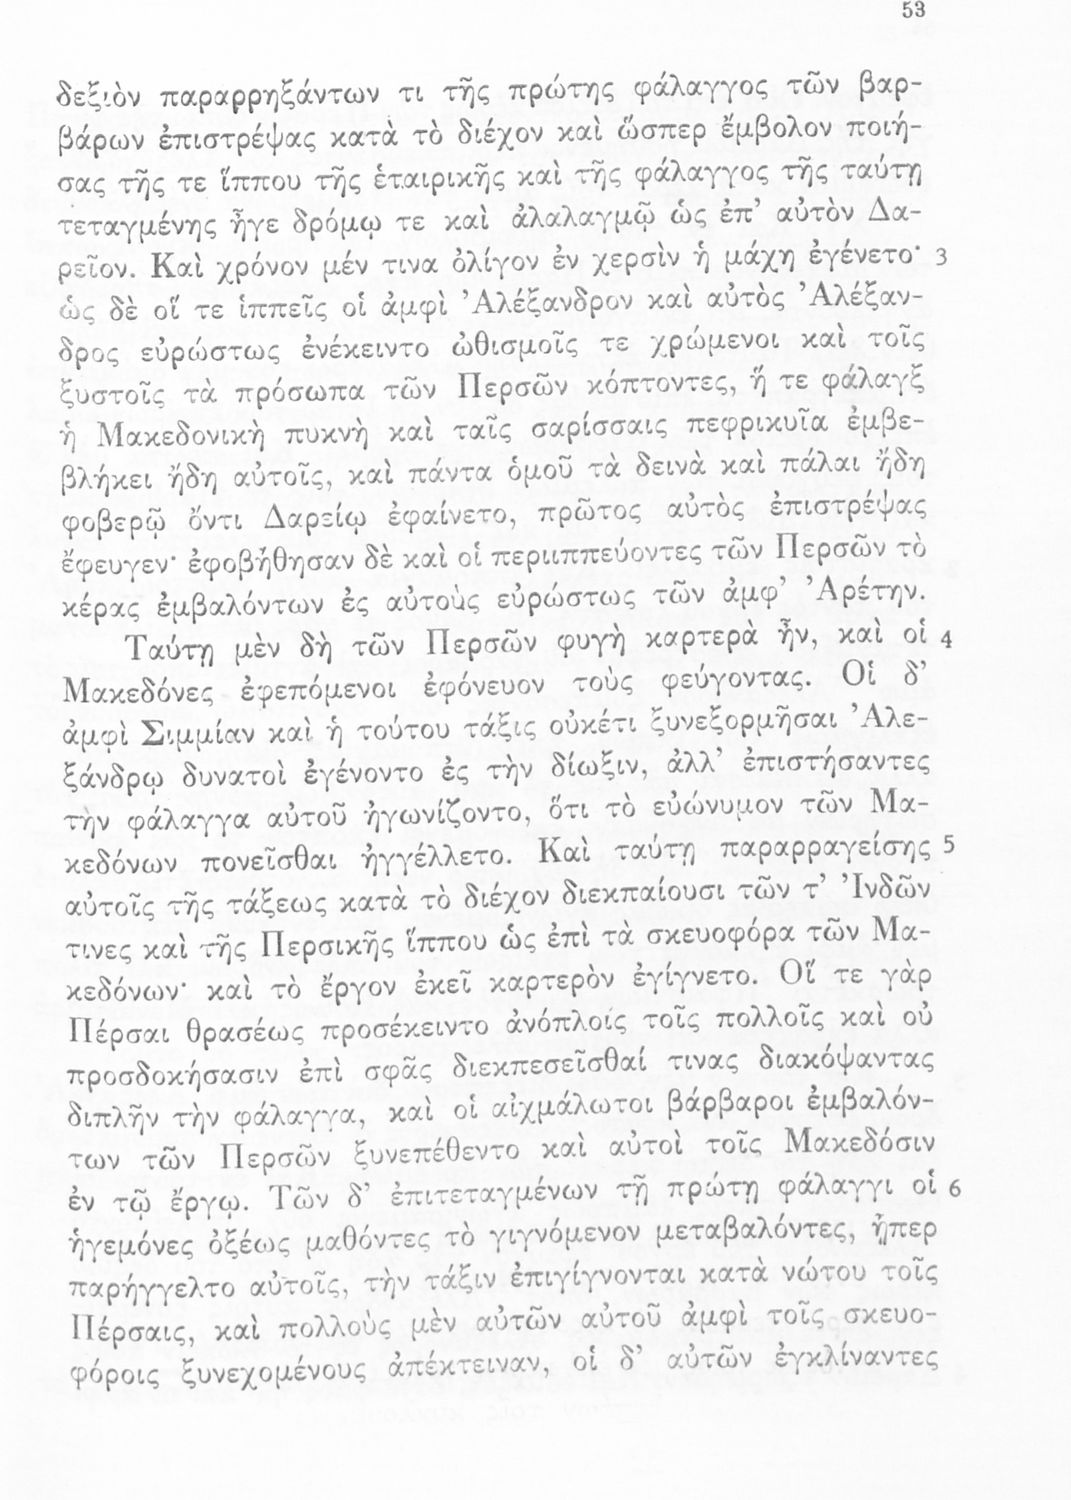 53
δεξιὸν παραρρηξάντων τι τῆς πρώτης φάλαγγος τῶν βαρ-
βάρων ἐπιστρέψας κατὰ τὸ διέχον καὶ ὥσπερ ἔμβολον ποιή-
σας τῆς τε ἵππου τῆς ἑταιρικῆς καὶ τῆς φάλαγγος τῆς ταύτῃ
τεταγμένης ἦγε δρόμῳ τε καὶ ἀλαλαγμῷ ὡς ἐπ’ αὐτὸν Δα-
ρεῖον. Καὶ χρόνον μέν τινα ὀλίγον ἐν χερσὶν ἡ μάχη ἐγένετο· 3
ὡς δὲ οἵ τε ἱππεῖς οἱ ἀμφὶ ’Αλέξανδρον καὶ αὐτὸς ’Αλέξαν-
δρος εὐρώστως ἐνέκειντο ὠθισμοῖς τε χρώμενοι καὶ τοῖς
ξυστοῖς τὰ πρόσωπα τῶν Περσῶν κόπτοντες, ἥ τε φάλαγξ
ἡ Μακεδονικὴ πυκνὴ καὶ ταῖς σαρίσσαις πεφρικυῖα ἐμβε-
βλήκει ἤδη αὐτοῖς, καὶ πάντα ὁμοῦ τὰ δεινὰ καὶ πάλαι ἤδη
φοβερῷ ὄντι Δαρείῳ ἐφαίνετο, πρῶτος αὐτὸς ἐπιστρέψας
ἔφευγεν· ἐφοβήθησαν δὲ καὶ οἱ περιιππεύοντες τῶν Περσῶν τὸ
κέρας ἐμβαλόντων ἐς αὐτοὺς εὐρώστως τῶν ἀμφ’ ’Αρέτην.
Ταύτῃ μὲν δὴ τῶν Περσῶν φυγὴ καρτερὰ ἦν, καὶ οἱ 4
Μακεδόνες ἐφεπόμενοι ἐφόνευον τοὺς φεύγοντας. Οἱ δ’
ἀμφὶ Σιμμίαν καὶ ἡ τούτου τάξις οὐκέτι ξυνεξορμῆσαι ’Αλε-
ξάνδρῳ δυνατοὶ ἐγένοντο ἐς τὴν δίωξιν, ἀλλ’ ἐπιστήσαντες
τὴν φάλαγγα αὐτοῦ ἠγωνίζοντο, ὅτι τὸ εὐώνυμον τῶν Μα-
κεδόνων πονεῖσθαι ἠγγέλλετο. Καὶ ταύτῃ παραρραγείσης 5
αὐτοῖς τῆς τάξεως κατὰ τὸ διέχον διεκπαίουσι τῶν τ’ ’Ινδῶν
τινες καὶ τῆς Περσικῆς ἵππου ὡς ἐπὶ τὰ σκευοφόρα τῶν Μα-
κεδόνων· καὶ τὸ ἔργον ἐκεῖ καρτερὸν ἐγίγνετο. Οἵ τε γὰρ
Πέρσαι θρασέως προσέκειντο ἀνόπλοις τοῖς πολλοῖς καὶ οὐ
προσδοκήσασιν ἐπὶ σφᾶς διεκπεσεῖσθαί τινας διακόψαντας
διπλῆν τὴν φάλαγγα, καὶ οἱ αἰχμάλωτοι βάρβαροι ἐμβαλόν-
των τῶν Περσῶν ξυνεπέθεντο καὶ αὐτοὶ τοῖς Μακεδόσιν
ἐν τῷ ἔργῳ. Τῶν δ’ ἐπιτεταγμένων τῇ πρώτῃ φάλαγγι οἱ 6
ἡγεμόνες ὀξέως μαθόντες τὸ γιγνόμενον μεταβαλόντες, ᾗπερ
παρήγγελτο αὐτοῖς, τὴν τάξιν ἐπιγίγνονται κατὰ νώτου τοῖς
Πέρσαις, καὶ πολλοὺς μὲν αὐτῶν αὐτοῦ ἀμφὶ τοῖς σκευο-
φόροις ξυνεχομένους ἀπέκτειναν, οἱ δ’ αὐτῶν ἐγκλίναντες